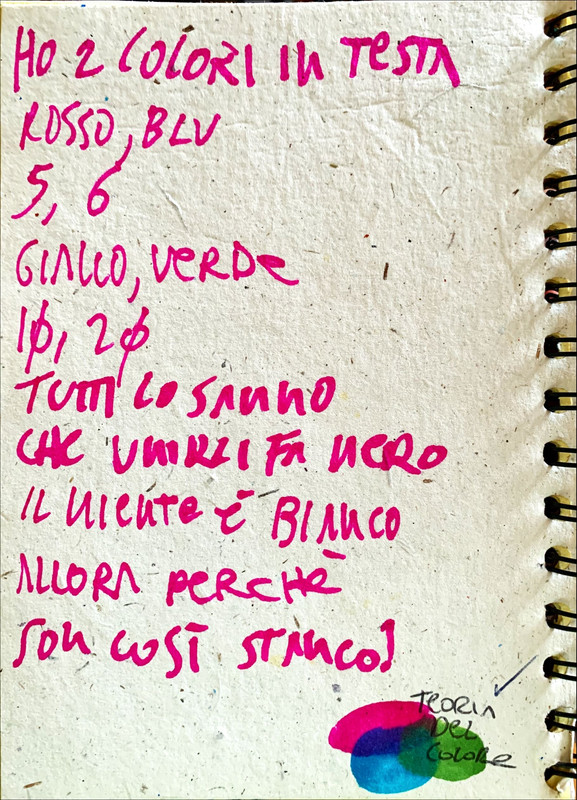 HO 2 COLORI IN TESTA
ROSSO, BLU
5, 6
GIALLO, VERDE
10, 20
TUTTI LO SANNO
CHE UNIRLI FA NERO
IL NIENTE È BIANCO
ALLORA PERCHÈ
SON COSÌ STANCO?
TEORIA
DEL
COLORE